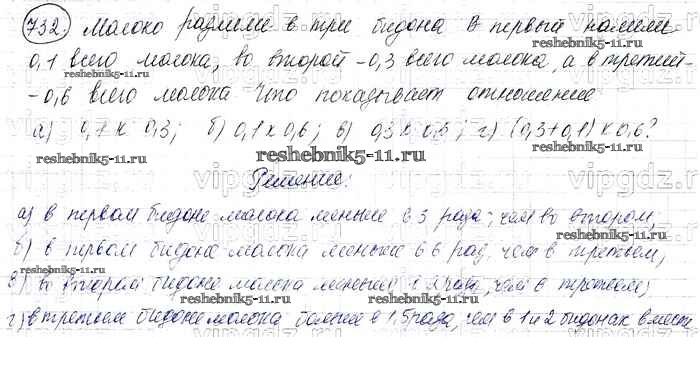 732. Молоко разлили в три бидона В первый налили
0,1 всего молока, во второй - 0,3 всего молока, а в третий -
- 0,6 всего молока. Что показывает отношение
reshebnik5-11.ru
а) 0,1 к 0,3; б) 0,1 к 0,6; в) 0,3 к 0,6; г) (0,3+0,1) к 0,6?
reshebnik5-11.ru reshebnik5-11.ru reshebnik5-11.ru
vipgdz.ru vipgdz.ru
Решение:
а) в первом бидоне молока меньше в 3 раза, чем во втором,
reshebnik5-11.ru
б) в первом бидоне молока меньше в 6 раз, чем в третьем,
в) во второй бидоне молока меньше в 2 раза, чем в третьем,
reshebnik5-11.ru reshebnik5-11.ru
г) в третьем бидоне молока больше в 1,5 раза, чем в 1 и 2 бидонах вместе
reshebnik5-11.ru